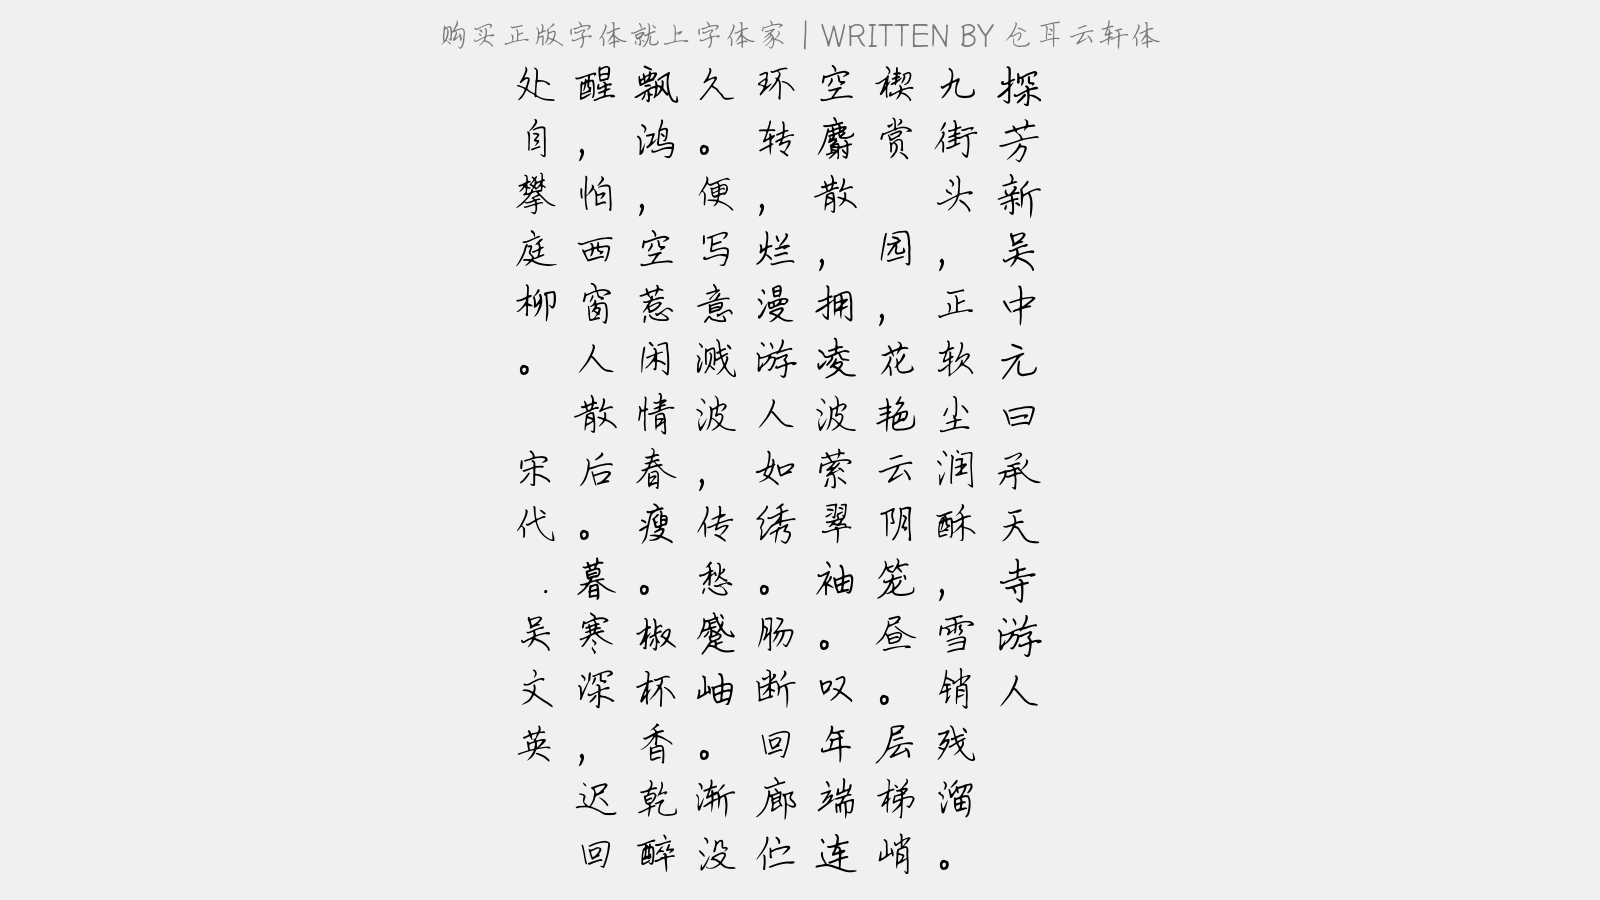 购买正版字体就上字体家 | WRITTEN BY 仓耳云轩体
探芳新吴中元日承天寺游人
九街头，正软尘润酥，雪销残溜。
禊赏 园，花艳云阴笼昼。层梯峭
空麝散，拥凌波萦翠袖。叹年端连
环转，烂漫游人如绣。肠断回廊伫
久。便写意溅波，传愁蹙岫。渐没
飘鸿，空惹闲情春瘦。椒杯香乾醉
醒，怕西窗人散后。暮寒深，迟回
处自攀庭柳。 宋代.吴文英